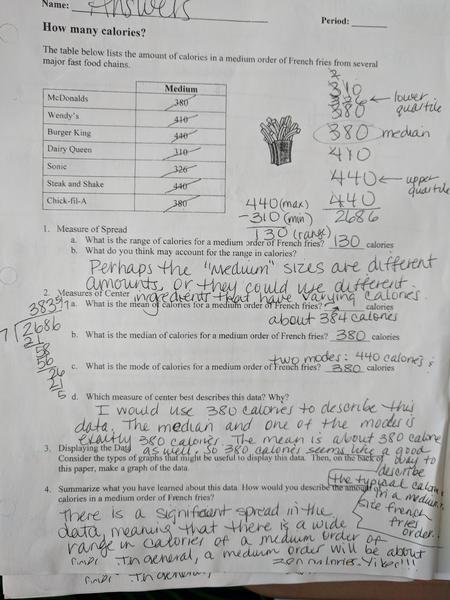 Name: Answers
Period:
How many calories?
The table below lists the amount of calories in a medium order of French fries from several
major fast food chains.
Medium
McDonalds 380
Wendy's 410
Burger King 440
Dairy Queen 310
Sonic 326
Steak and Shake 440
Chick-fil-A 380
2
310
326 ← lower quartile
380
380 median
410
440 ← upper quartile
440
2686
440 (max)
-310 (min)
130 (range)
1. Measure of Spread
a. What is the range of calories for a medium order of French fries? 130 calories
b. What do you think may account for the range in calories?
Perhaps the "medium" sizes are different
amounts, or they could use different
ingredients that have varying calories.
2. Measures of Center
a. What is the mean of calories for a medium order of French fries? calories
about 384 calories
383 5/7
7 2686
21
58
56
26
21
5
b. What is the median of calories for a medium order of French fries? 380 calories
two modes: 440 calories &
c. What is the mode of calories for a medium order of French fries? 380 calories
d. Which measure of center best describes this data? Why?
I would use 380 calories to describe this
data. The median and one of the modes is
exactly 380 calories. The mean is about 380 calorie
as well, so 380 calories seems like a good
way to
describe
the typical calories
in a medium
size french
fries
order.
3. Displaying the Data
Consider the types of graphs that might be useful to display this data. Then, on the back of
this paper, make a graph of the data.
4. Summarize what you have learned about this data. How would you describe the amount
calories in a medium order of French fries?
There is a significant spread in the
data, meaning that there is a wide
range in calories of a medium order of
fries. In general, a medium order will be about
calories. Yikes!!!
fries. In general,